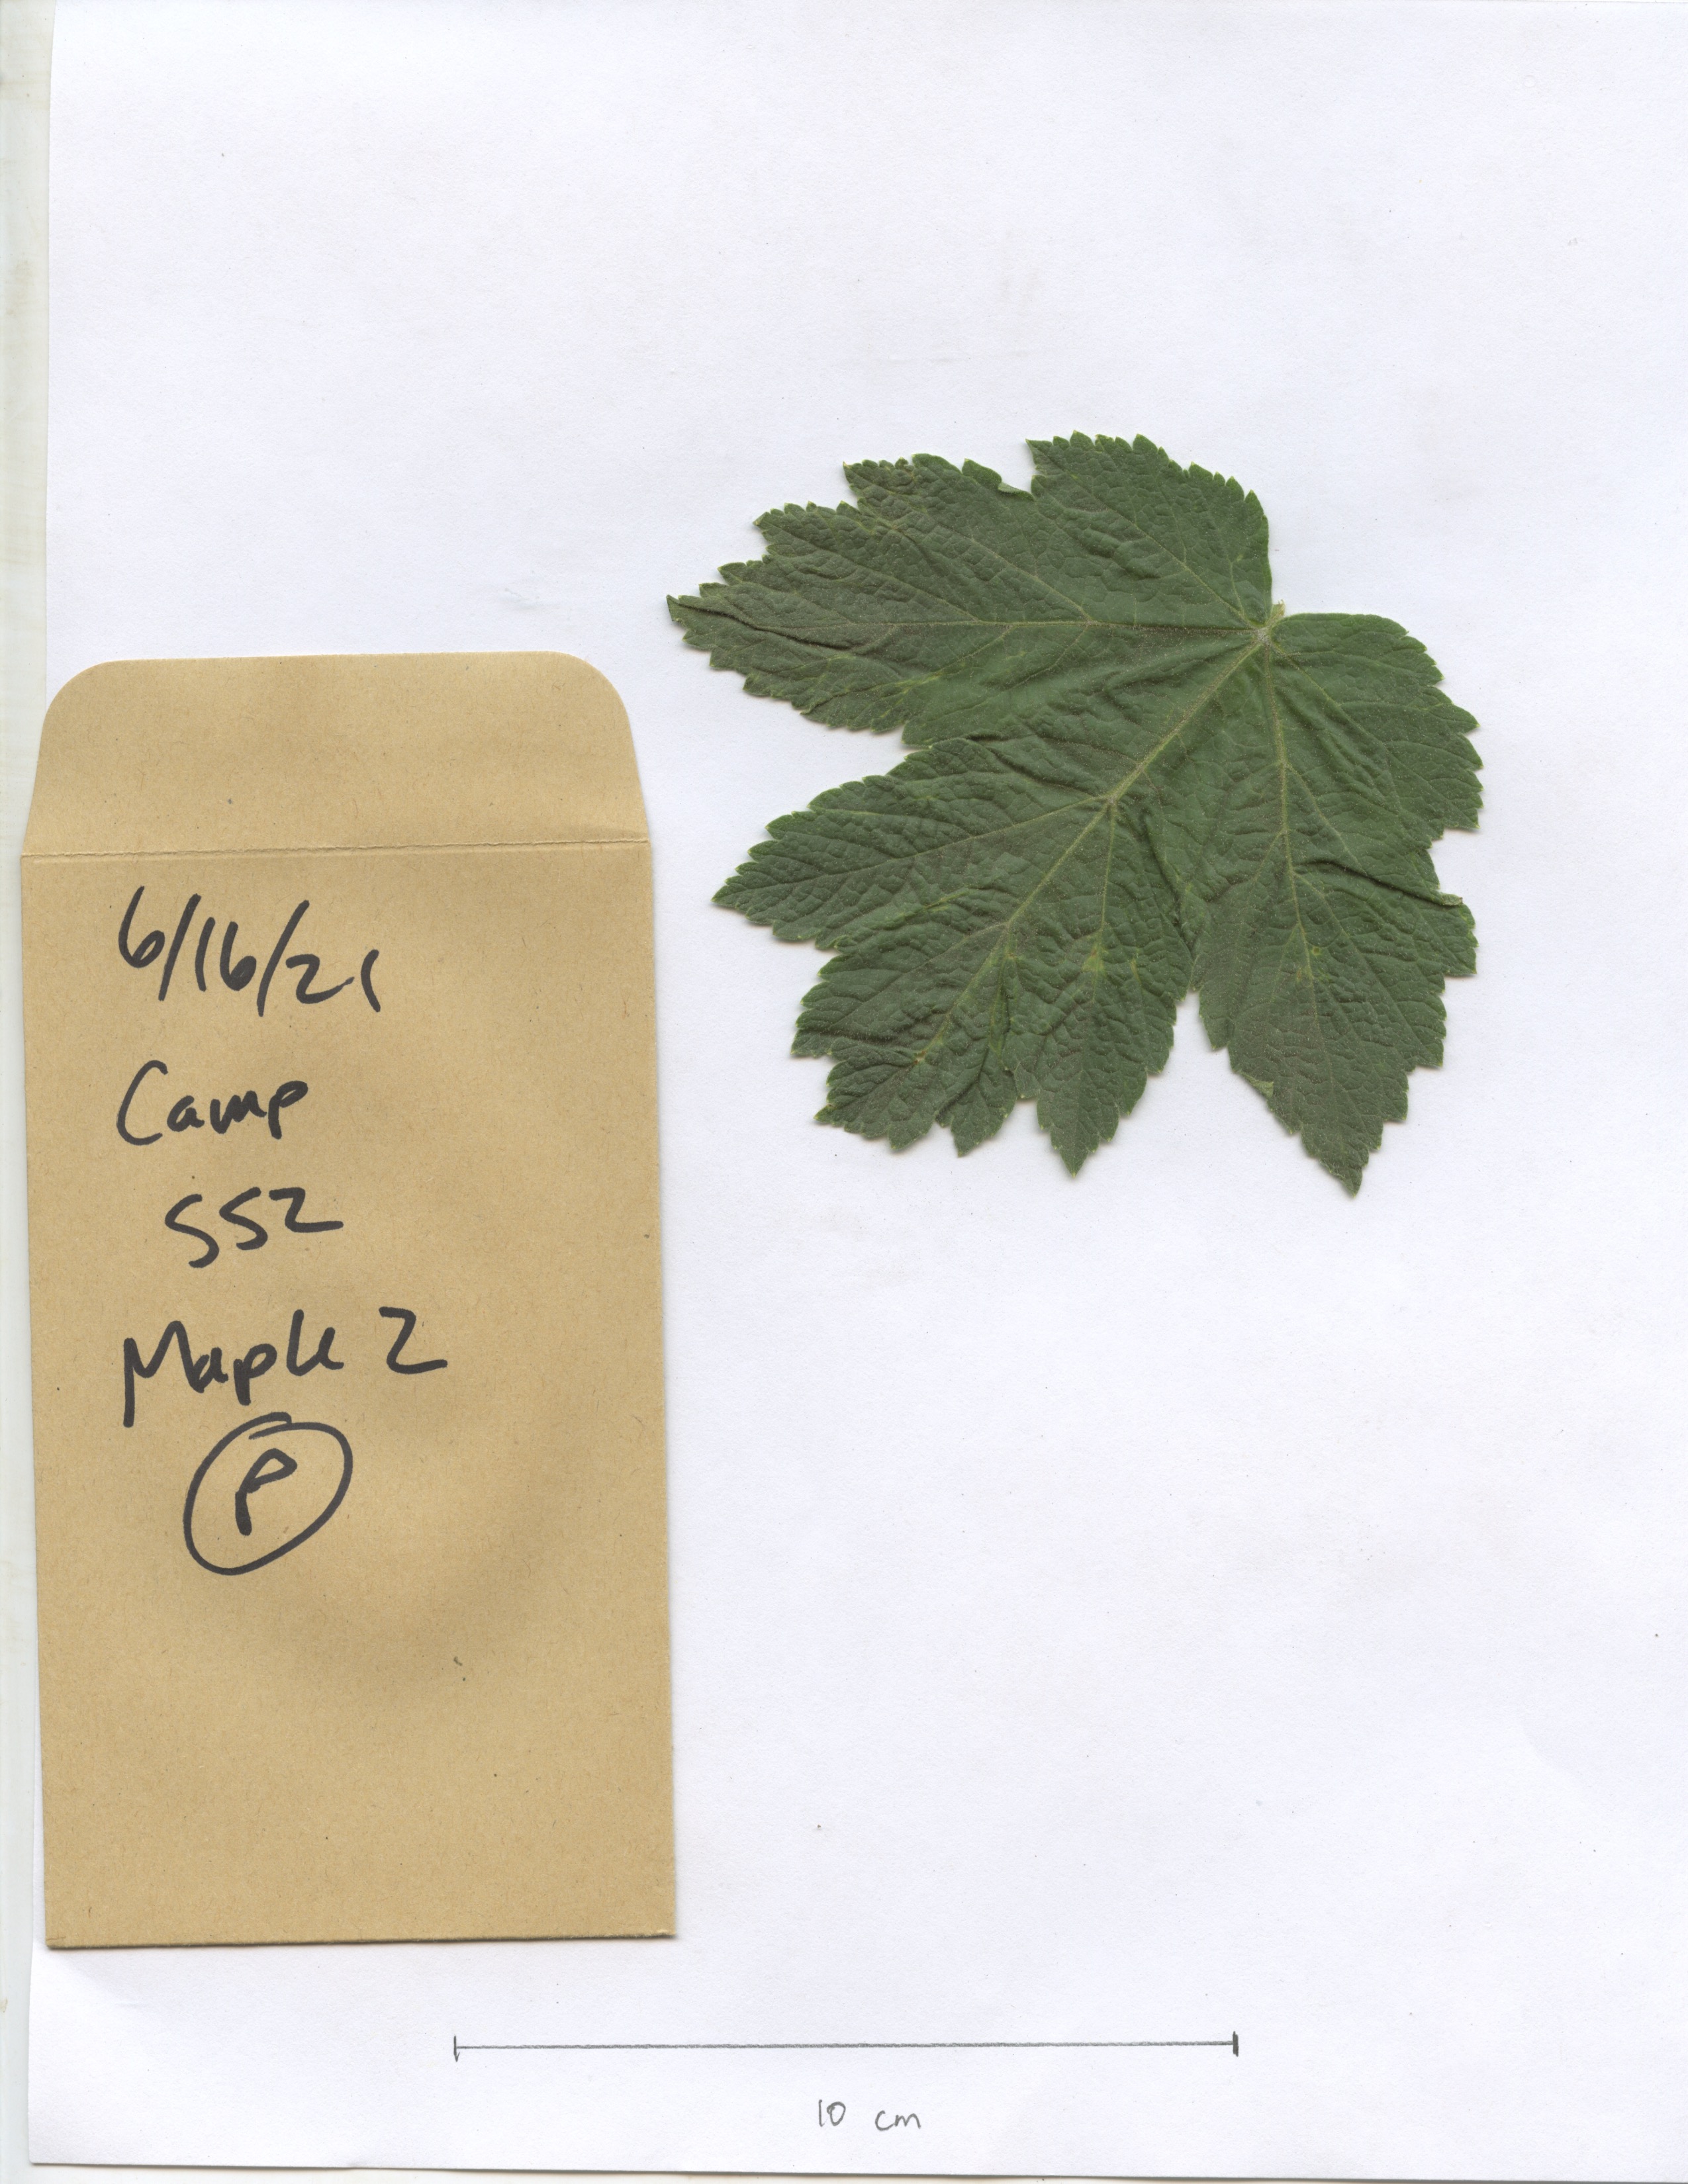 6/16/21
Camp
SS2
Maple 2
P
10 cm